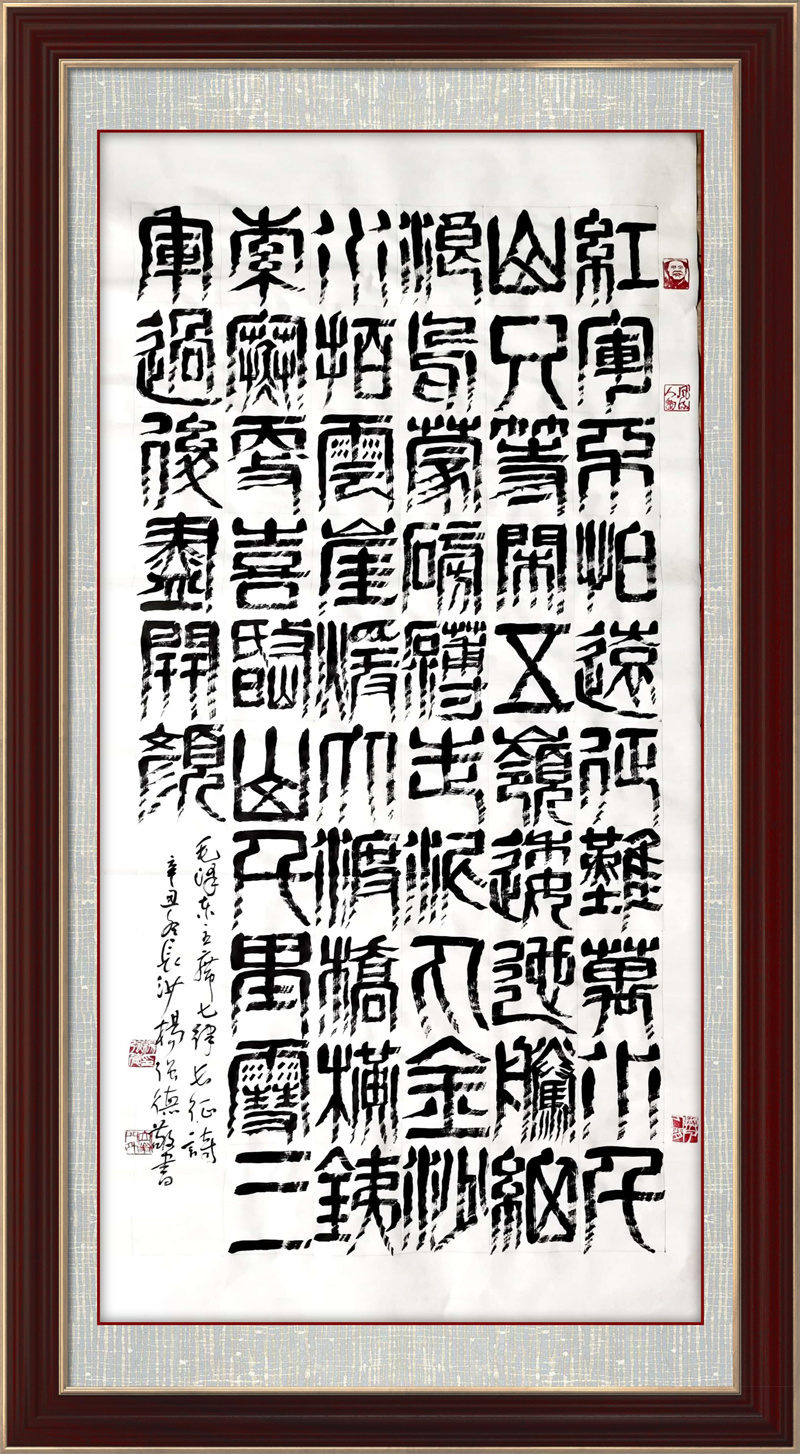 紅軍不怕遠征難萬水千
山只等閑五嶺逶迤騰細
浪烏蒙磅礴走泥丸金沙
水拍雲崖暖大渡橋橫銕
索寒更喜岷山千里雪三
軍過後盡開顏
毛澤东主席七律长征詩
辛丑冬長沙楊强德敬書